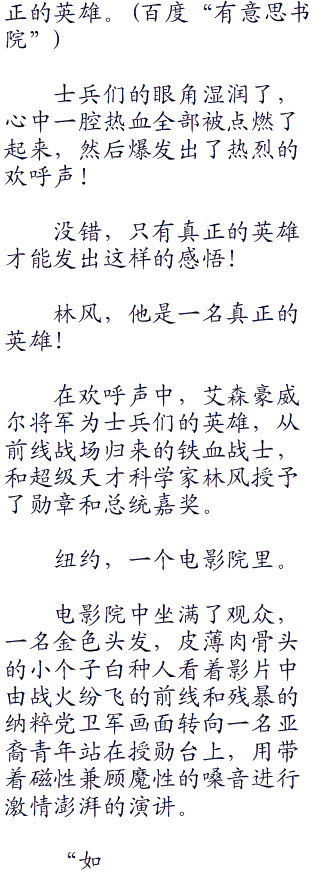 正的英雄。(百度“有意思书
院”)
士兵们的眼角湿润了，
心中一腔热血全部被点燃了
起来，然后爆发出了热烈的
欢呼声！
没错，只有真正的英雄
才能发出这样的感悟！
林风，他是一名真正的
英雄！
在欢呼声中，艾森豪威
尔将军为士兵们的英雄，从
前线战场归来的铁血战士，
和超级天才科学家林风授予
了勋章和总统嘉奖。
纽约，一个电影院里。
电影院中坐满了观众，
一名金色头发，皮薄肉骨头
的小个子白种人看着影片中
由战火纷飞的前线和残暴的
纳粹党卫军画面转向一名亚
裔青年站在授勋台上，用带
着磁性兼顾魔性的嗓音进行
激情澎湃的演讲。
“如